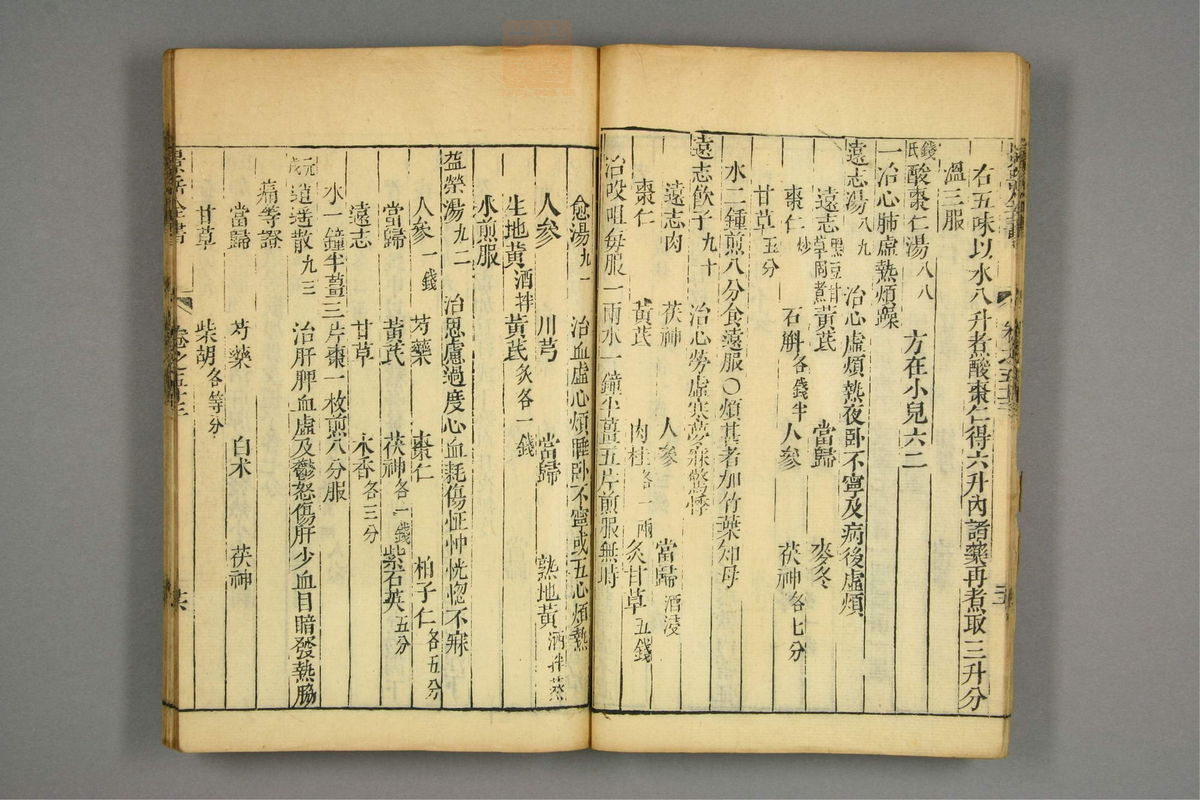 右五味以水八升煮酸棗仁得六升內諸藥再煮取三升分
溫三服
錢氏酸棗仁湯八八 方在小兒六二
一治心肺虛熱煩躁
遠志湯八九 治心虛煩熱夜卧不寧及病後虛煩
遠志黑豆甘草同煮 黃芪 當歸 麥冬
棗仁炒 石斛各錢半 人參 茯神各七分
甘草五分
水二鍾煎八分食遠服○煩甚者加竹葉知母
遠志飲子九十 治心勞虛寒夢寐驚悸
遠志肉 茯神 人參 當歸酒浸
棗仁 黃芪 肉桂各一兩 炙甘草五錢
治㕮咀每服一兩水一鐘半薑五片煎服無時
愈湯九一 治血虛心煩睡卧不寧或五心煩熱
人參 川芎 當歸 熟地黃酒拌蒸
生地黃酒拌 黃芪炙各一錢
水煎服
益榮湯九二 治思慮過度心血耗傷怔忡恍惚不寐
人參一錢 芍藥 棗仁 柏子仁各五分
當歸 黃芪 茯神各一錢 紫石英五分
遠志 甘草 木香各三分
水一鐘半薑三片棗一枚煎八分服
元戎逍遙散九三 治肝脾血虛及鬱怒傷肝少血目暗發熱脇
痛等證
當歸 芍藥 白术 茯神
甘草 柴胡各等分
景岳全書 卷之五十三